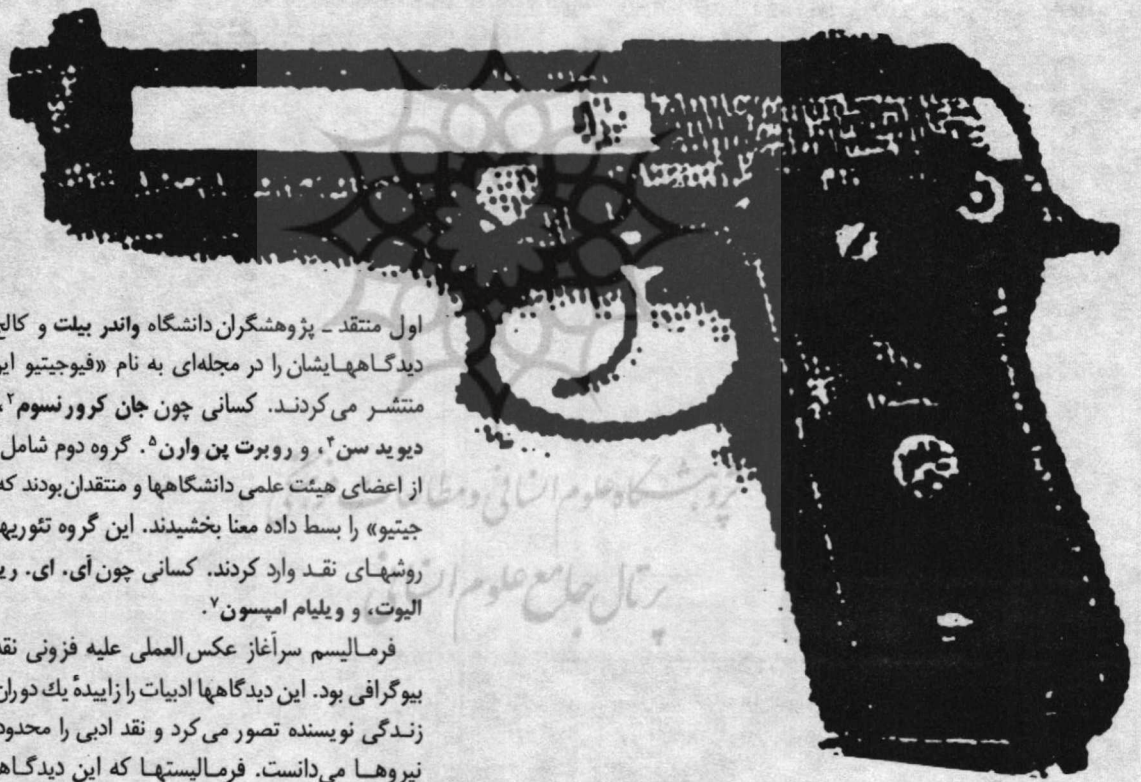 اول منتقد ـ پژوهشگران دانشگاه واندر بیلت و کالج
دیدگاههایشان را در مجله‌ای به نام «فیوجیتیو
منتشر می‌کردند. کسانی چون جان کرور نسوم۲،
دیوید سن۴، و روبرت پن وارن۵. گروه دوم شامل
از اعضای هیئت علمی دانشگاهها و منتقدان بودند که
جیتیو» را بسط داده معنا بخشیدند. این گروه تئوریها
روشهای نقد وارد کردند. کسانی چون آی. ای.
الیوت، و ویلیام امپسون۷.
فرمالیسم سرآغاز عکس‌العملی علیه فزونی نقد
بیوگرافی بود. این دیدگاهها ادبیات را زاییدهٔ یك دوران
زندگی نویسنده تصور می‌کرد و نقد ادبی را محدود
نیروها می‌دانست. فرمالیستها که این دیدگاه
پژوهشگاه علوم انسانی و مطالعات فرهنگی
پرتال جامع علوم انسانی